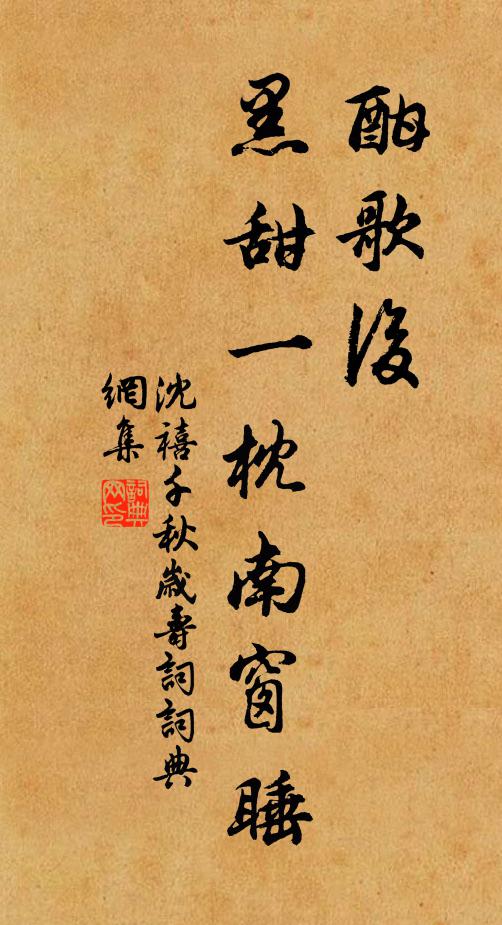 酣歌後
黑甜一枕南窗睡
沈禧千秋歲壽詞詞典
網集
詞典
网印